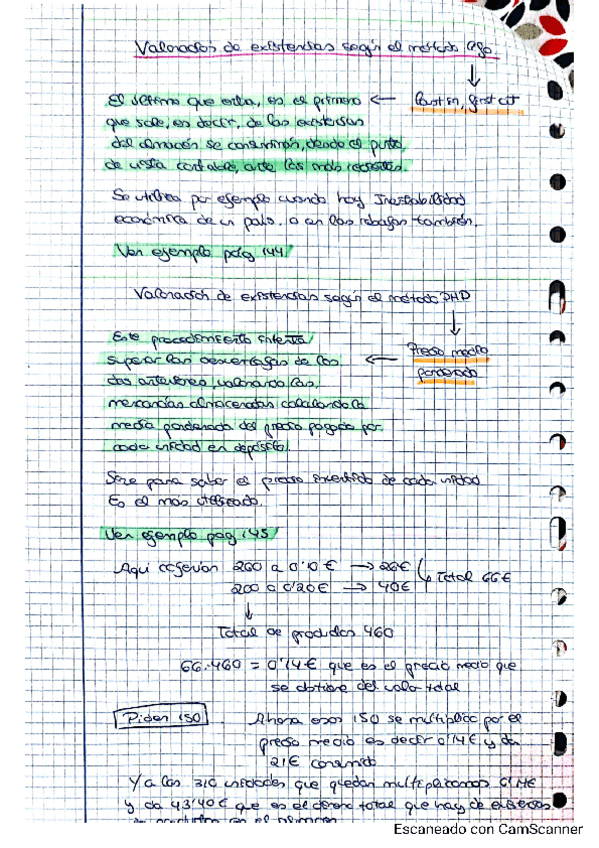 Valoración de existencias según el método lifo.
El último que entra, es el primero ← Last in, first out
que sale, es decir, de las existencias
del almacén se consumirán, desde el punto
de vista contable, ante las más recientes.
Se utiliza por ejemplo cuando hay Inestabilidad
económica de un país. o en las rebajas también.
Ver ejemplo pág 144
Valoración de existencias según el método PMP
Este procedimiento intenta
superar las desventajas de las ← Precio medio
dos anteriores, valorando las ponderado
mercancías almacenadas calculando la
media ponderada del precio pagado por
cada unidad en depósito.
Sirve para saber el precio invertido de cada unidad
Es el más utilizado.
Ver ejemplo pag 145
Aquí 260 a 0'10 € → 26€
200 a 0'20€ → 40€ Total 66€
Total de productos 460
66:460 = 0'14€ que es el precio medio que
se obtiene del valor total
Piden 150 Ahora esos 150 se multiplica por el
precio medio es decir 0'14€ y da
21€
Y a las 310 unidades que quedan multiplicamos 0'14€
y da 43'40€ que es el dinero total que hay de existencias
Escaneado con CamScanner